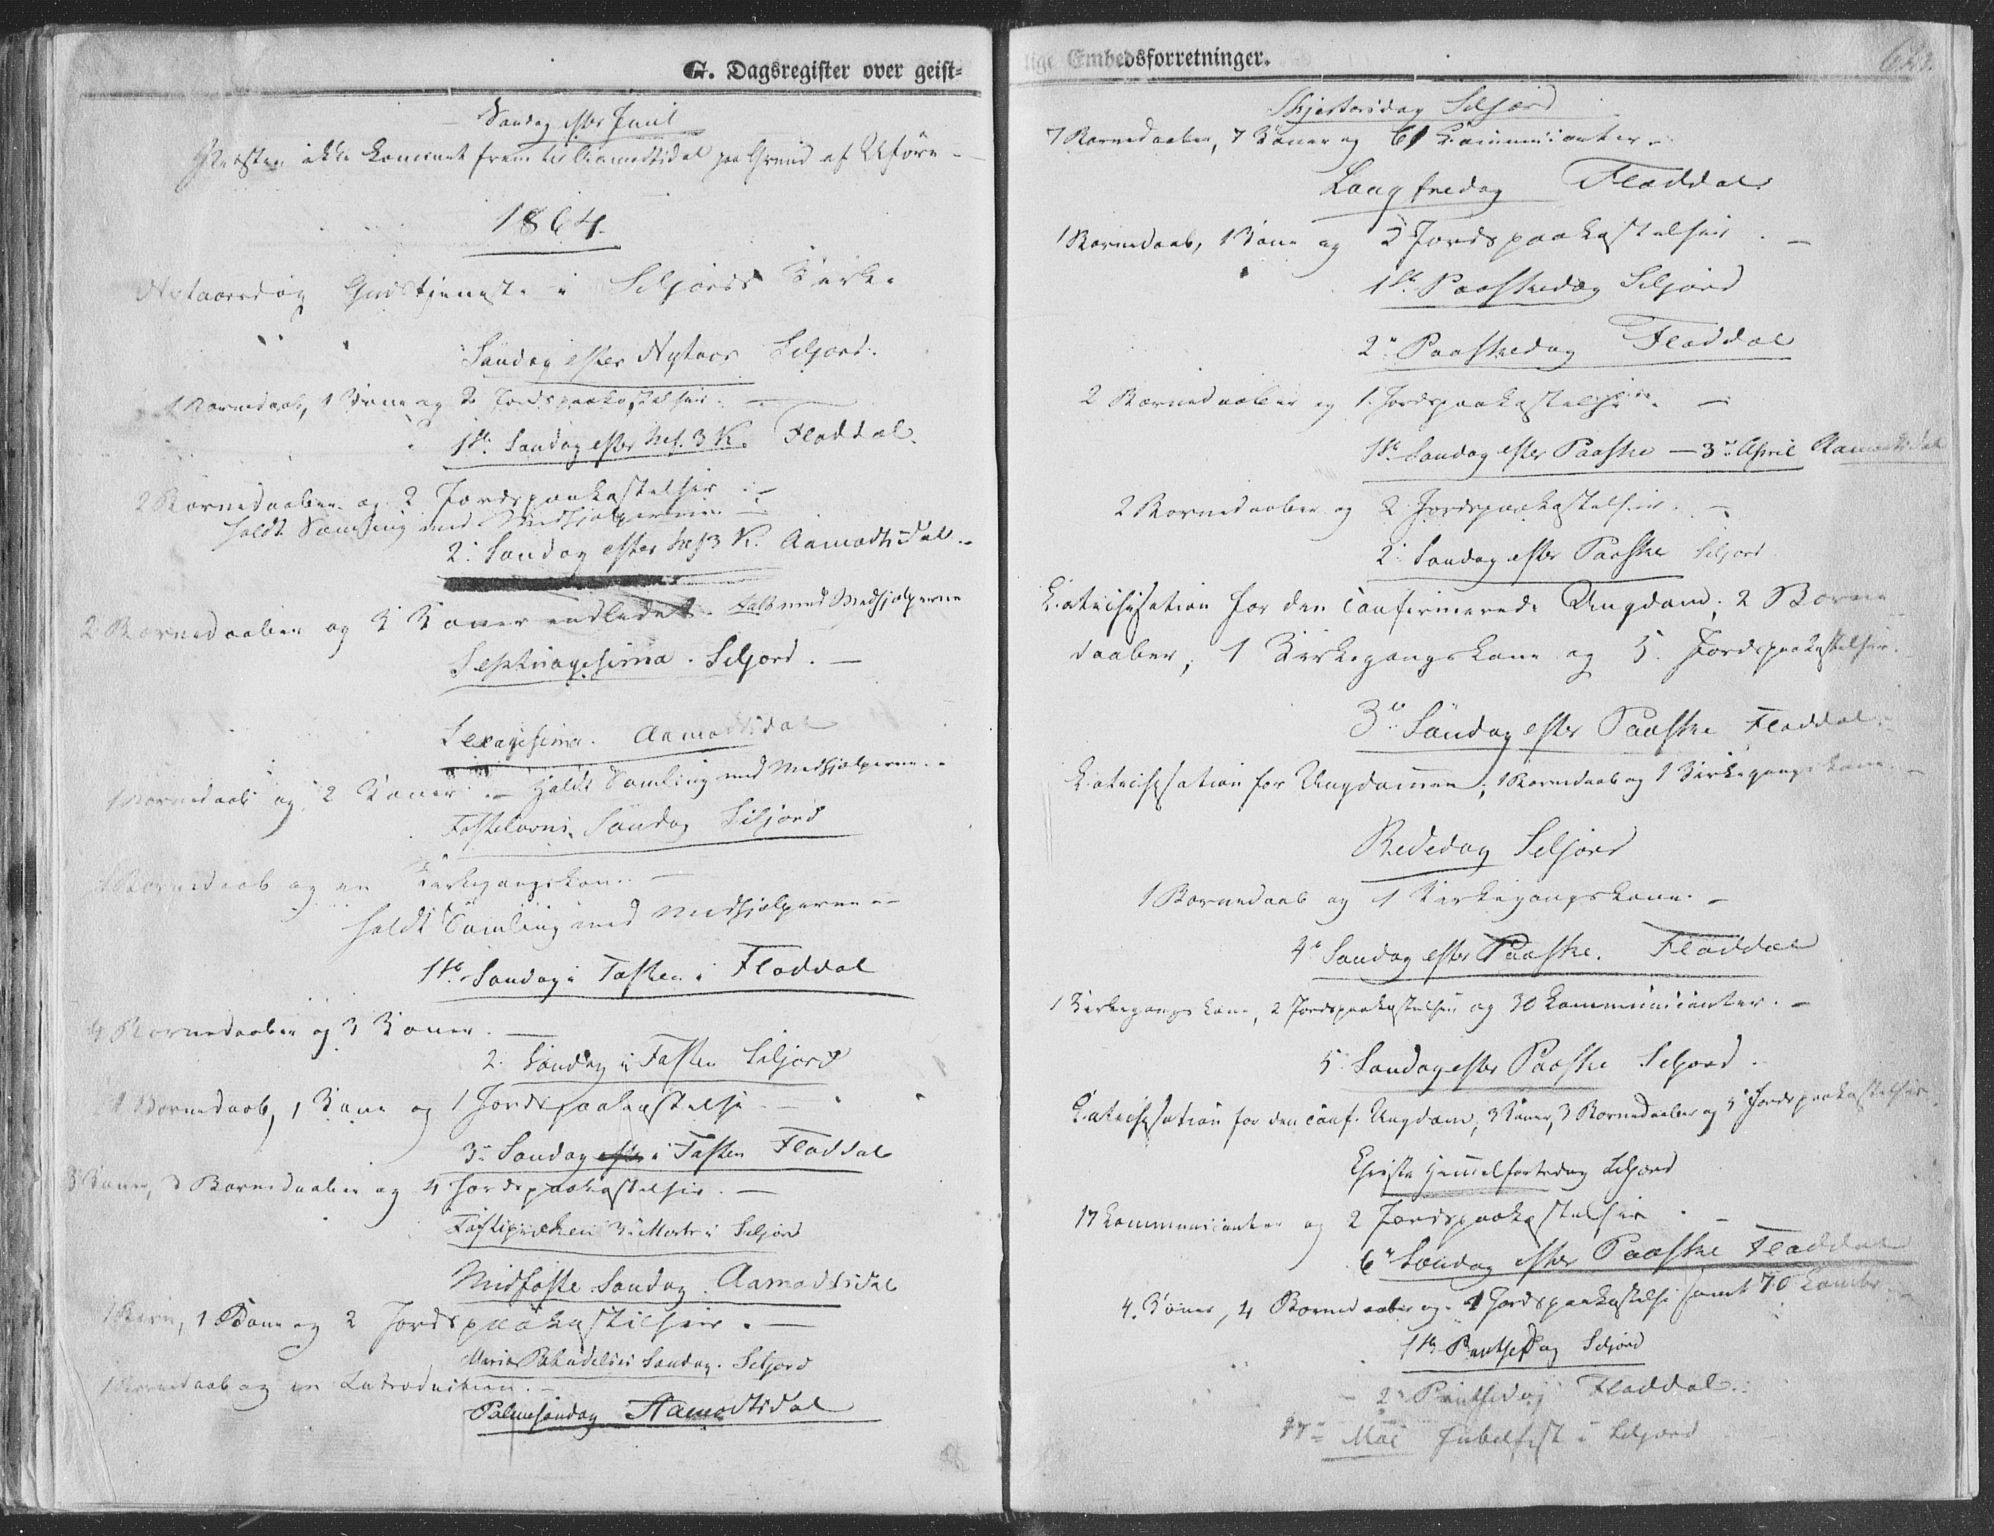 G. Dagsregister over geist-
Søndag efter Juul
Præsten ikke kommet frem til Aamodtsdal paa Grund af Uføre –
1864.
Nytaarsdag Gudstjeneste i Seljords Kirke
Søndag efter Nytaar Seljord.
1 Barnedaab, 1 Kone og 2 Jordspaakastelser. –
1ste Søndag efter Hel. 3 K. Fladdal.
2 Barnedaaber og 2 Jordspaakastelser. –
Holdt Samling med Medhjælperne –
2. Søndag efter H 3 K. Aamodtsdal. –
2 Barnedaaber og 3 Koner indledet. Talt med Medhjælperne
Septuagesima. Seljord. –
Sexagesima. Aamodtsdal
1 Barnedaab og 2 Koner. – Holdt Samling med Medhjælperne. –
Fastelavns Søndag Seljord
1 Barnedaab og en Kirkegangskone. –
Holdt Samling med Medhjælperne –
1ste Søndag i Fasten i Fladdal
4 Barnedaaber og 3 Koner. –
2. Søndag i Fasten Seljord
1 Barnedaab, 1 Kone og 1 Jordspaakastelse. –
3. Søndag i Fasten Fladdal
3 Koner, 3 Barnedaaber og 4 Jordspaakastelser. –
Fastepræken 3. Marts i Seljord
Midfaste Søndag. Aamodtsdal
1 Barn, 1 Kone og 2 Jordspaakastelser. –
Maria Bebudelses Søndag. Seljord
1 Barnedaab og en Introduction. –
Palmesøndag Aamodtsdal
lige Embedsforretninger.
Skjertorsdag Seljord
7 Barnedaaber, 7 Koner og 61 Communicanter. –
Langfredag Fladdal.
1 Barnedaab, 1 Kone og 2 Jordspaakastelser. –
1ste Paaskedag Seljord
2. Paaskedag Fladdal
2 Barnedaaber og 1 Jordspaakastelse. –
1ste Søndag efter Paaske – 3. April Aamodtsdal
2 Barnedaaber og 2 Jordspaakastelser. –
2. Søndag efter Paaske Seljord
Catechisation for den confirmerede Ungdom; 2 Barne
daaber, 1 Kirkegangskone og 5 Jordspaakastelser.
3. Søndag efter Paaske Fladdal.
Catechisation for Ungdommen; 1 Barnedaab og 1 Kirkegangskone. –
Bededag Seljord
1 Barnedaab og 1 Kirkegangskone. –
4. Søndag efter Paaske. Fladdal
1 Kirkegangskone, 2 Jordspaakastelser og 30 Communicanter. –
5 Søndag efter Paaske Seljord.
Catechisation for den conf. Ungdom, 3 Koner, 3 Barnedaaber og 5 Jordspaakastelser.
Christi Himmelfartsdag Seljord
17 Communicanter og 2 Jordspaakastelser. –
6. Søndag efter Paaske Fladdal
4 Koner, 4 Barnedaaber og 1 Jordspaakastelse samt 70
1ste Pintsedag Seljord
2. Pintsedag Fladdal.
17. Mai Jubelfest i Seljord